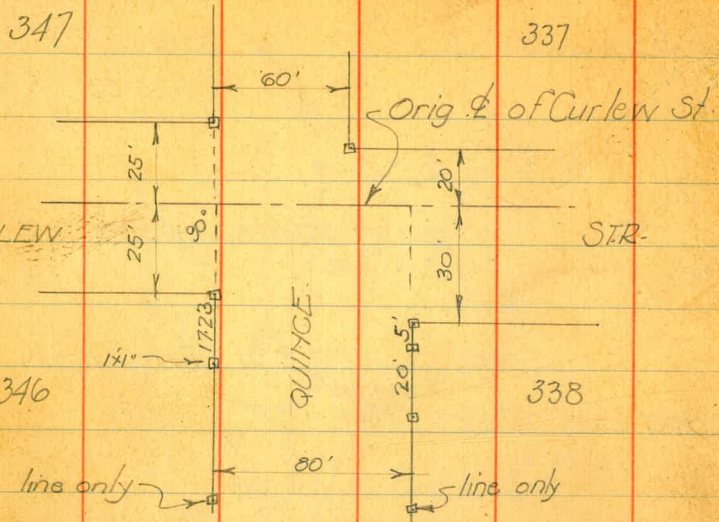 347
337
60'
Orig ℄ of Curlew St.
25'
20'
LEW
90°
STR.
25'
30'
QUINCE
17.23
5'
1"x1"
20'
346
338
80'
line only
line only